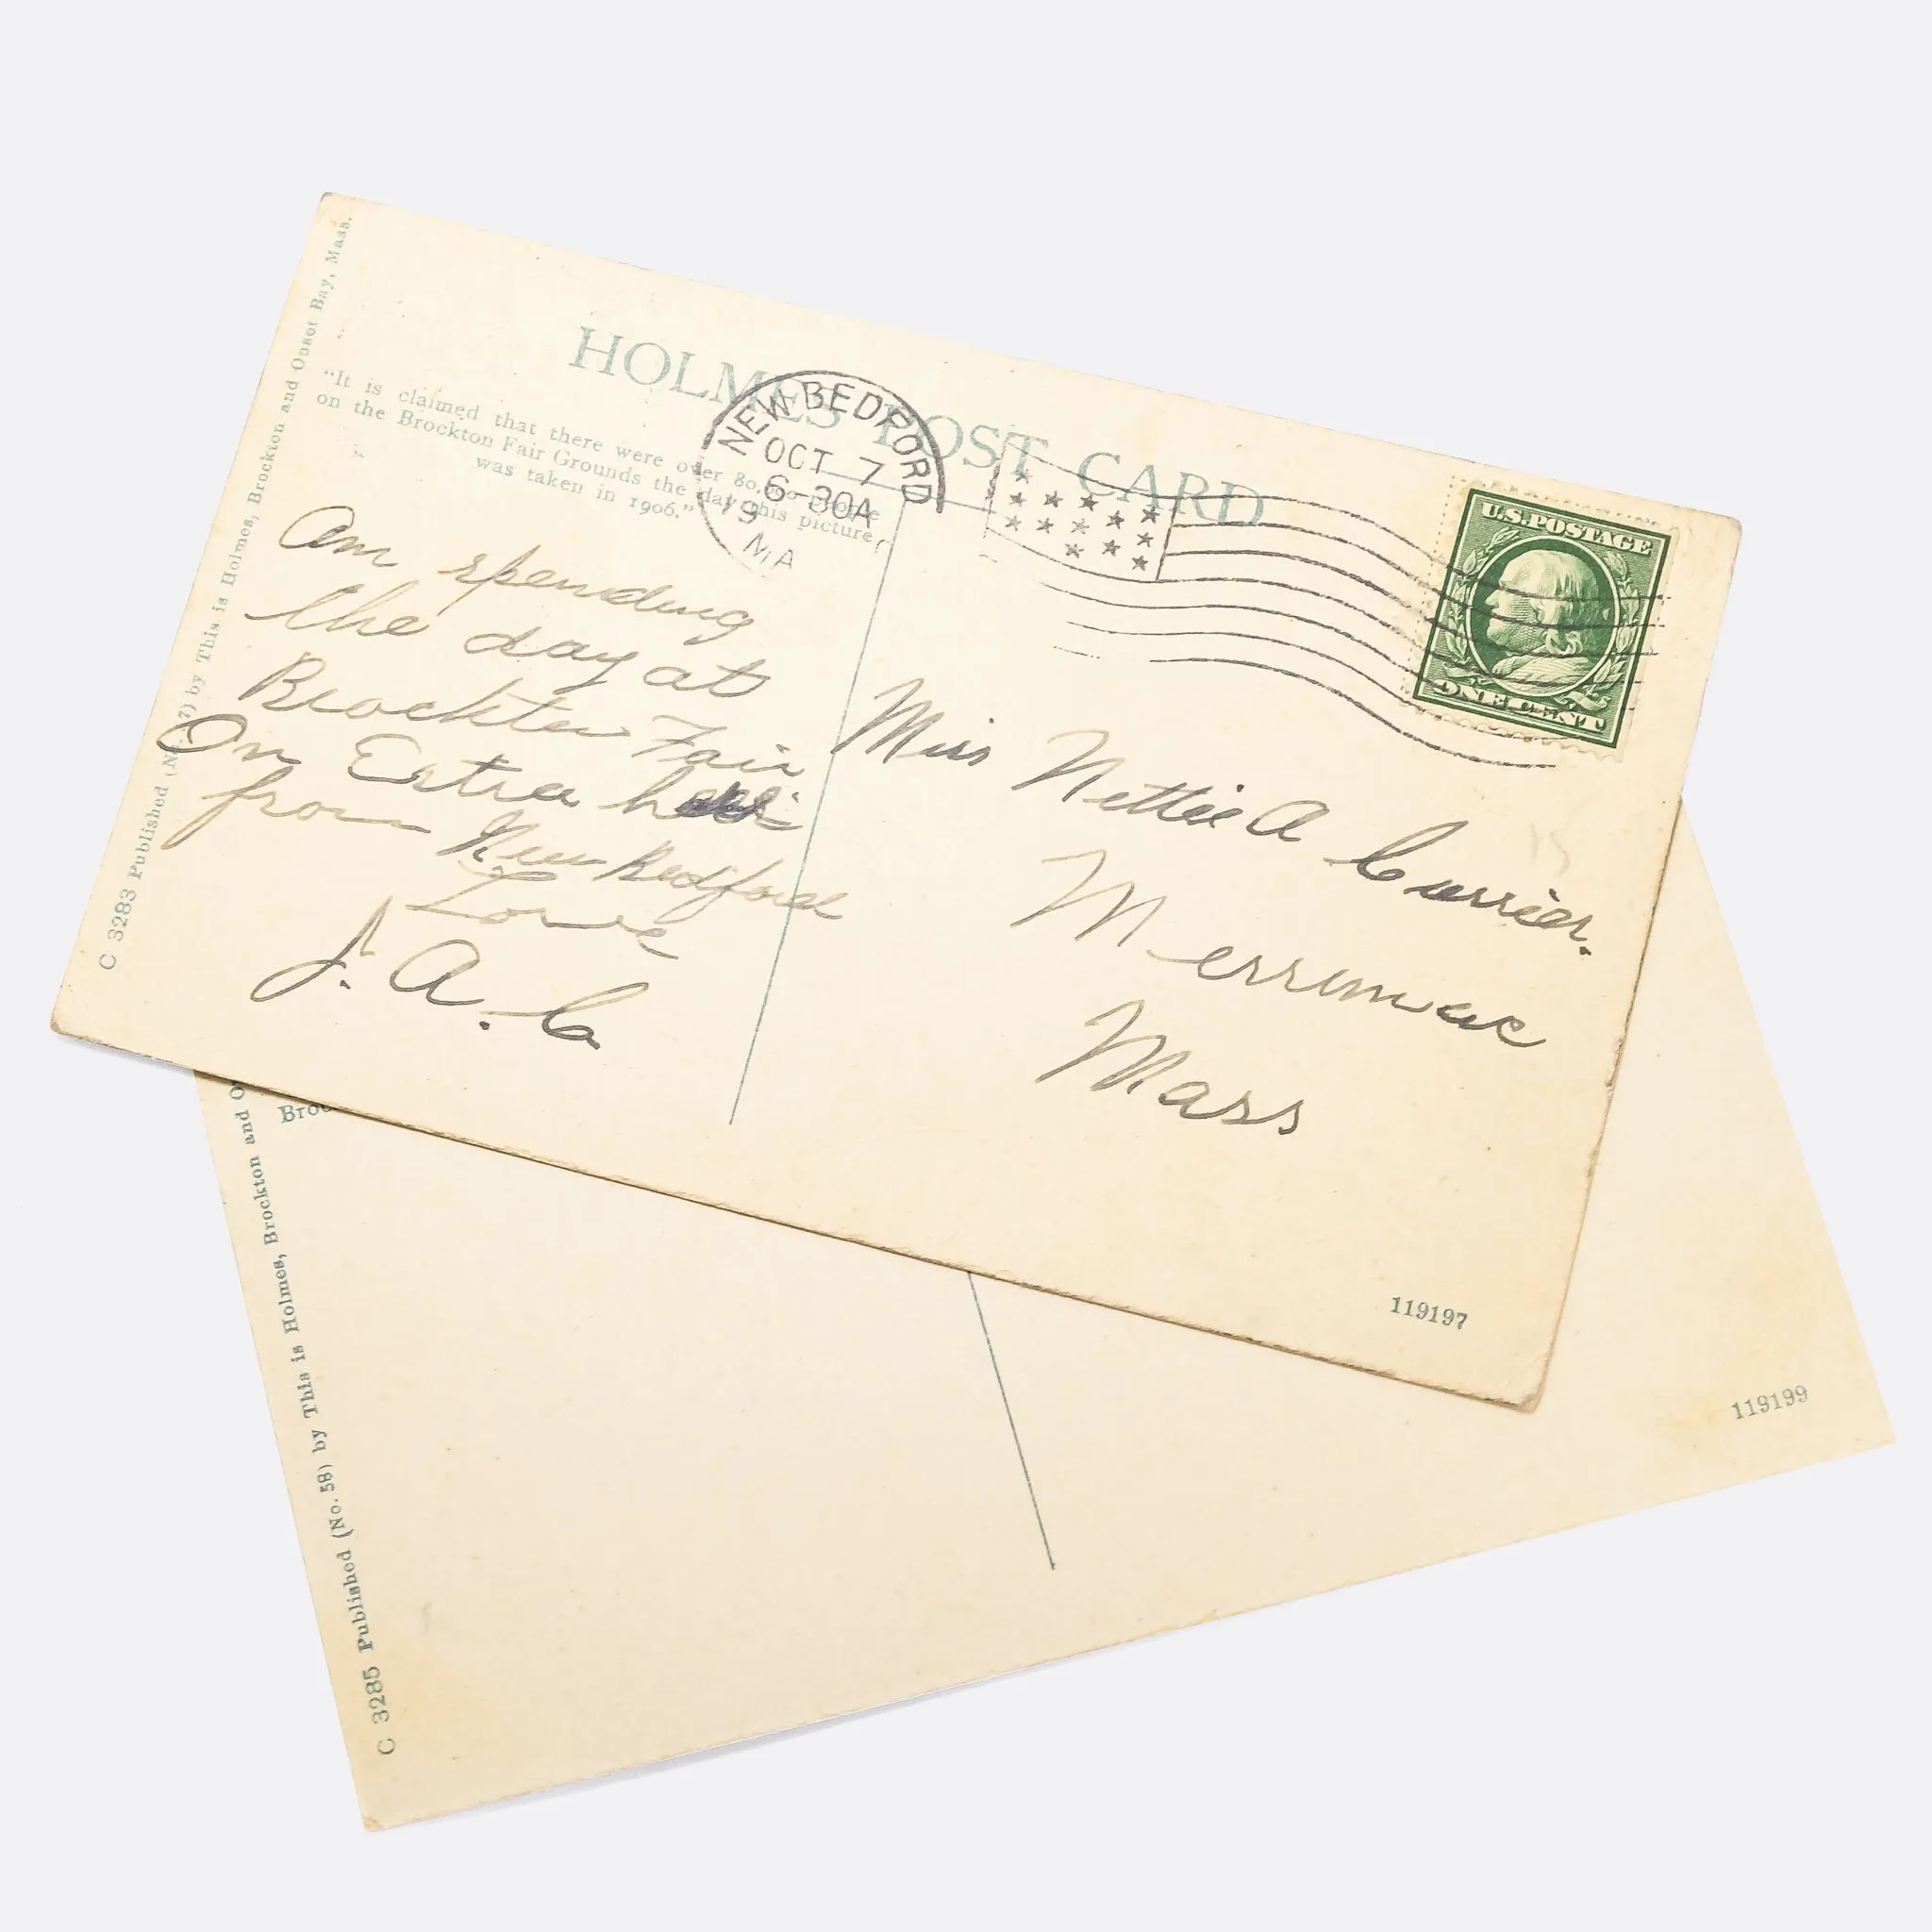 HOLMES POST CARD
"It is claimed that there were over 80,000 people
on the Brockton Fair Grounds the day this picture
was taken in 1906."
NEW BEDFORD
OCT 7
6-30A
19
MA
U.S. POSTAGE
ONE CENT
Am spending
the day at
Brockton Fair
On Extra
from New Bedford
Love
J. A. C
Miss Nettie A Currier.
Merrimac
Mass
119197
C 3283 Published by This is Holmes, Brockton and Onset Bay, Mass.
Broc
C 3285 Published (No. 58) by This is Holmes, Brockton and O
119199